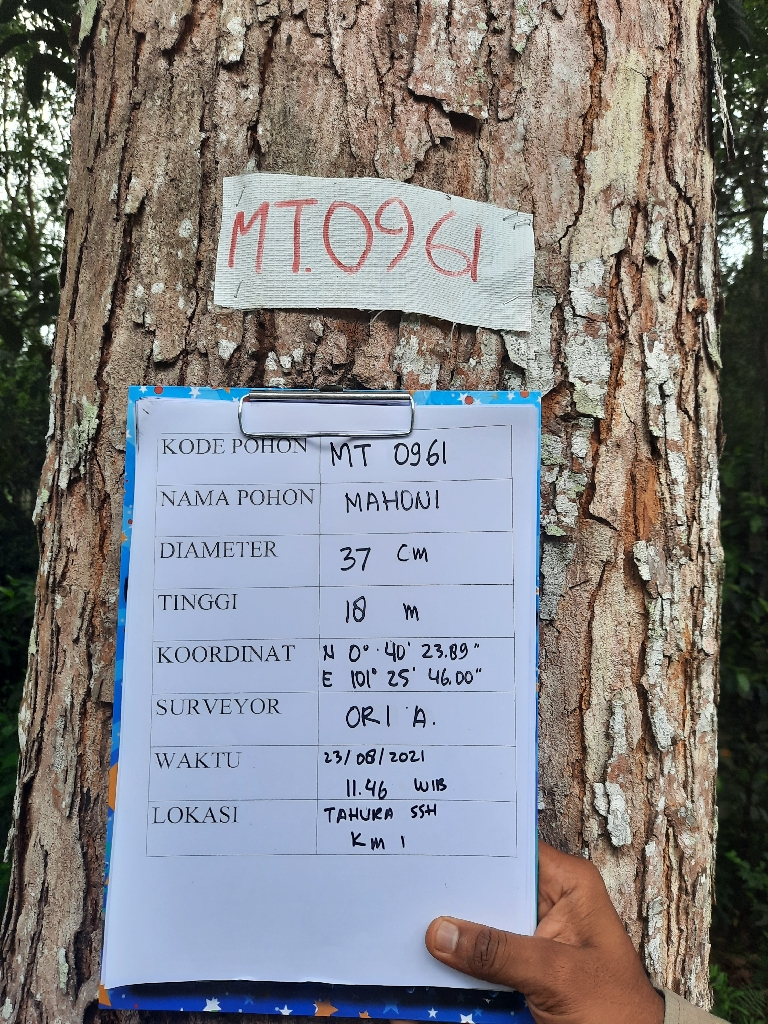 MT.0961
KODE POHON MT 0961
NAMA POHON MAHONI
DIAMETER 37 cm
TINGGI 18 m
KOORDINAT N 0° 40' 23.89"
E 101° 25' 46.00"
SURVEYOR ORI A.
WAKTU 23/08/2021
11.46 WIB
LOKASI TAHURA SSH
Km 1